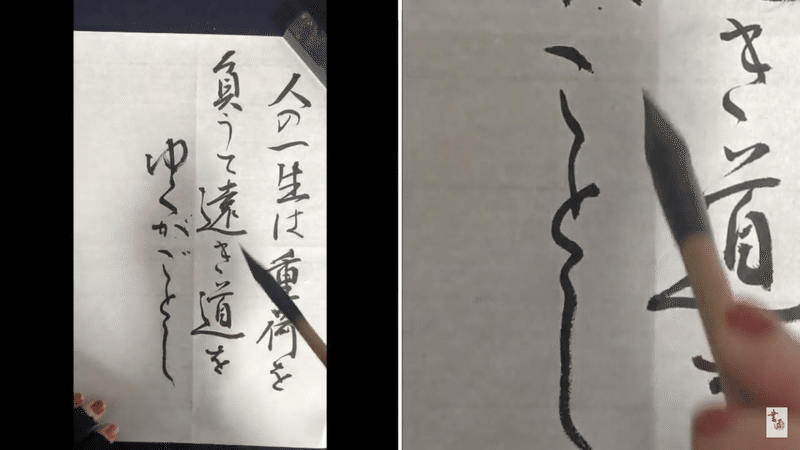 人の一生は重荷を
負うて遠き道を
ゆくがごとし
き道
とし